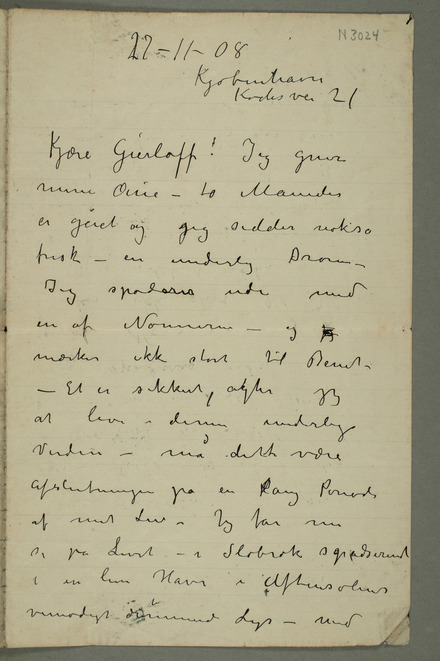 N 3024
27-11-08
Kjøbenhavn
Kochsvei 21
Kjære Gierløff! Jeg gnir
mine Øine – to Maaneder
er gået og jeg sidder nokså
frisk – en underlig Drøm –
Jeg spadserer ude med
en af Nonnerne – og
mærker ikke stort til Benet –
– Et er sikkert, efter jeg
at leve i denne underlige
Verden – må dette være
afslutningen på en lang Periode
af mit Liv – Jeg får nu
se på Livet – i Slobrok spadserende
i en liten Have i Aftensolens
vemodigt døende Lys – med